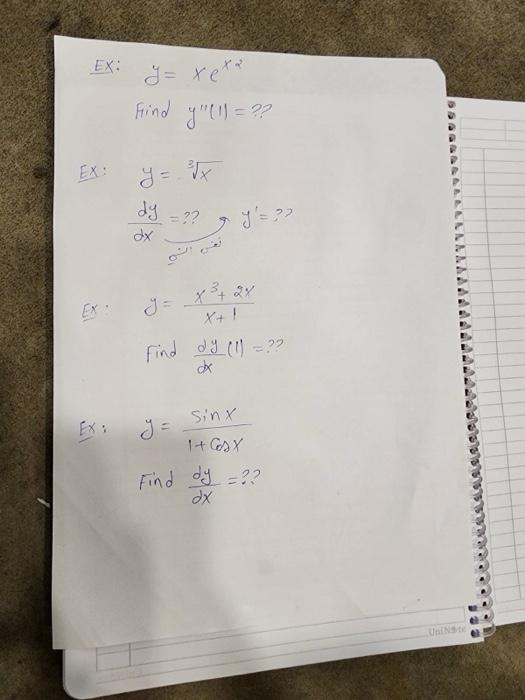 EX: y = x e^x2
Find y''(1) = ??
EX: y = ∛x
dy/dx = ?? y' = ??
نفس الشي
EX: y = x^3 + 2x / x + 1
Find dy/dx (1) = ??
EX: y = sin x / 1 + Cos x
Find dy/dx = ??
UniNote